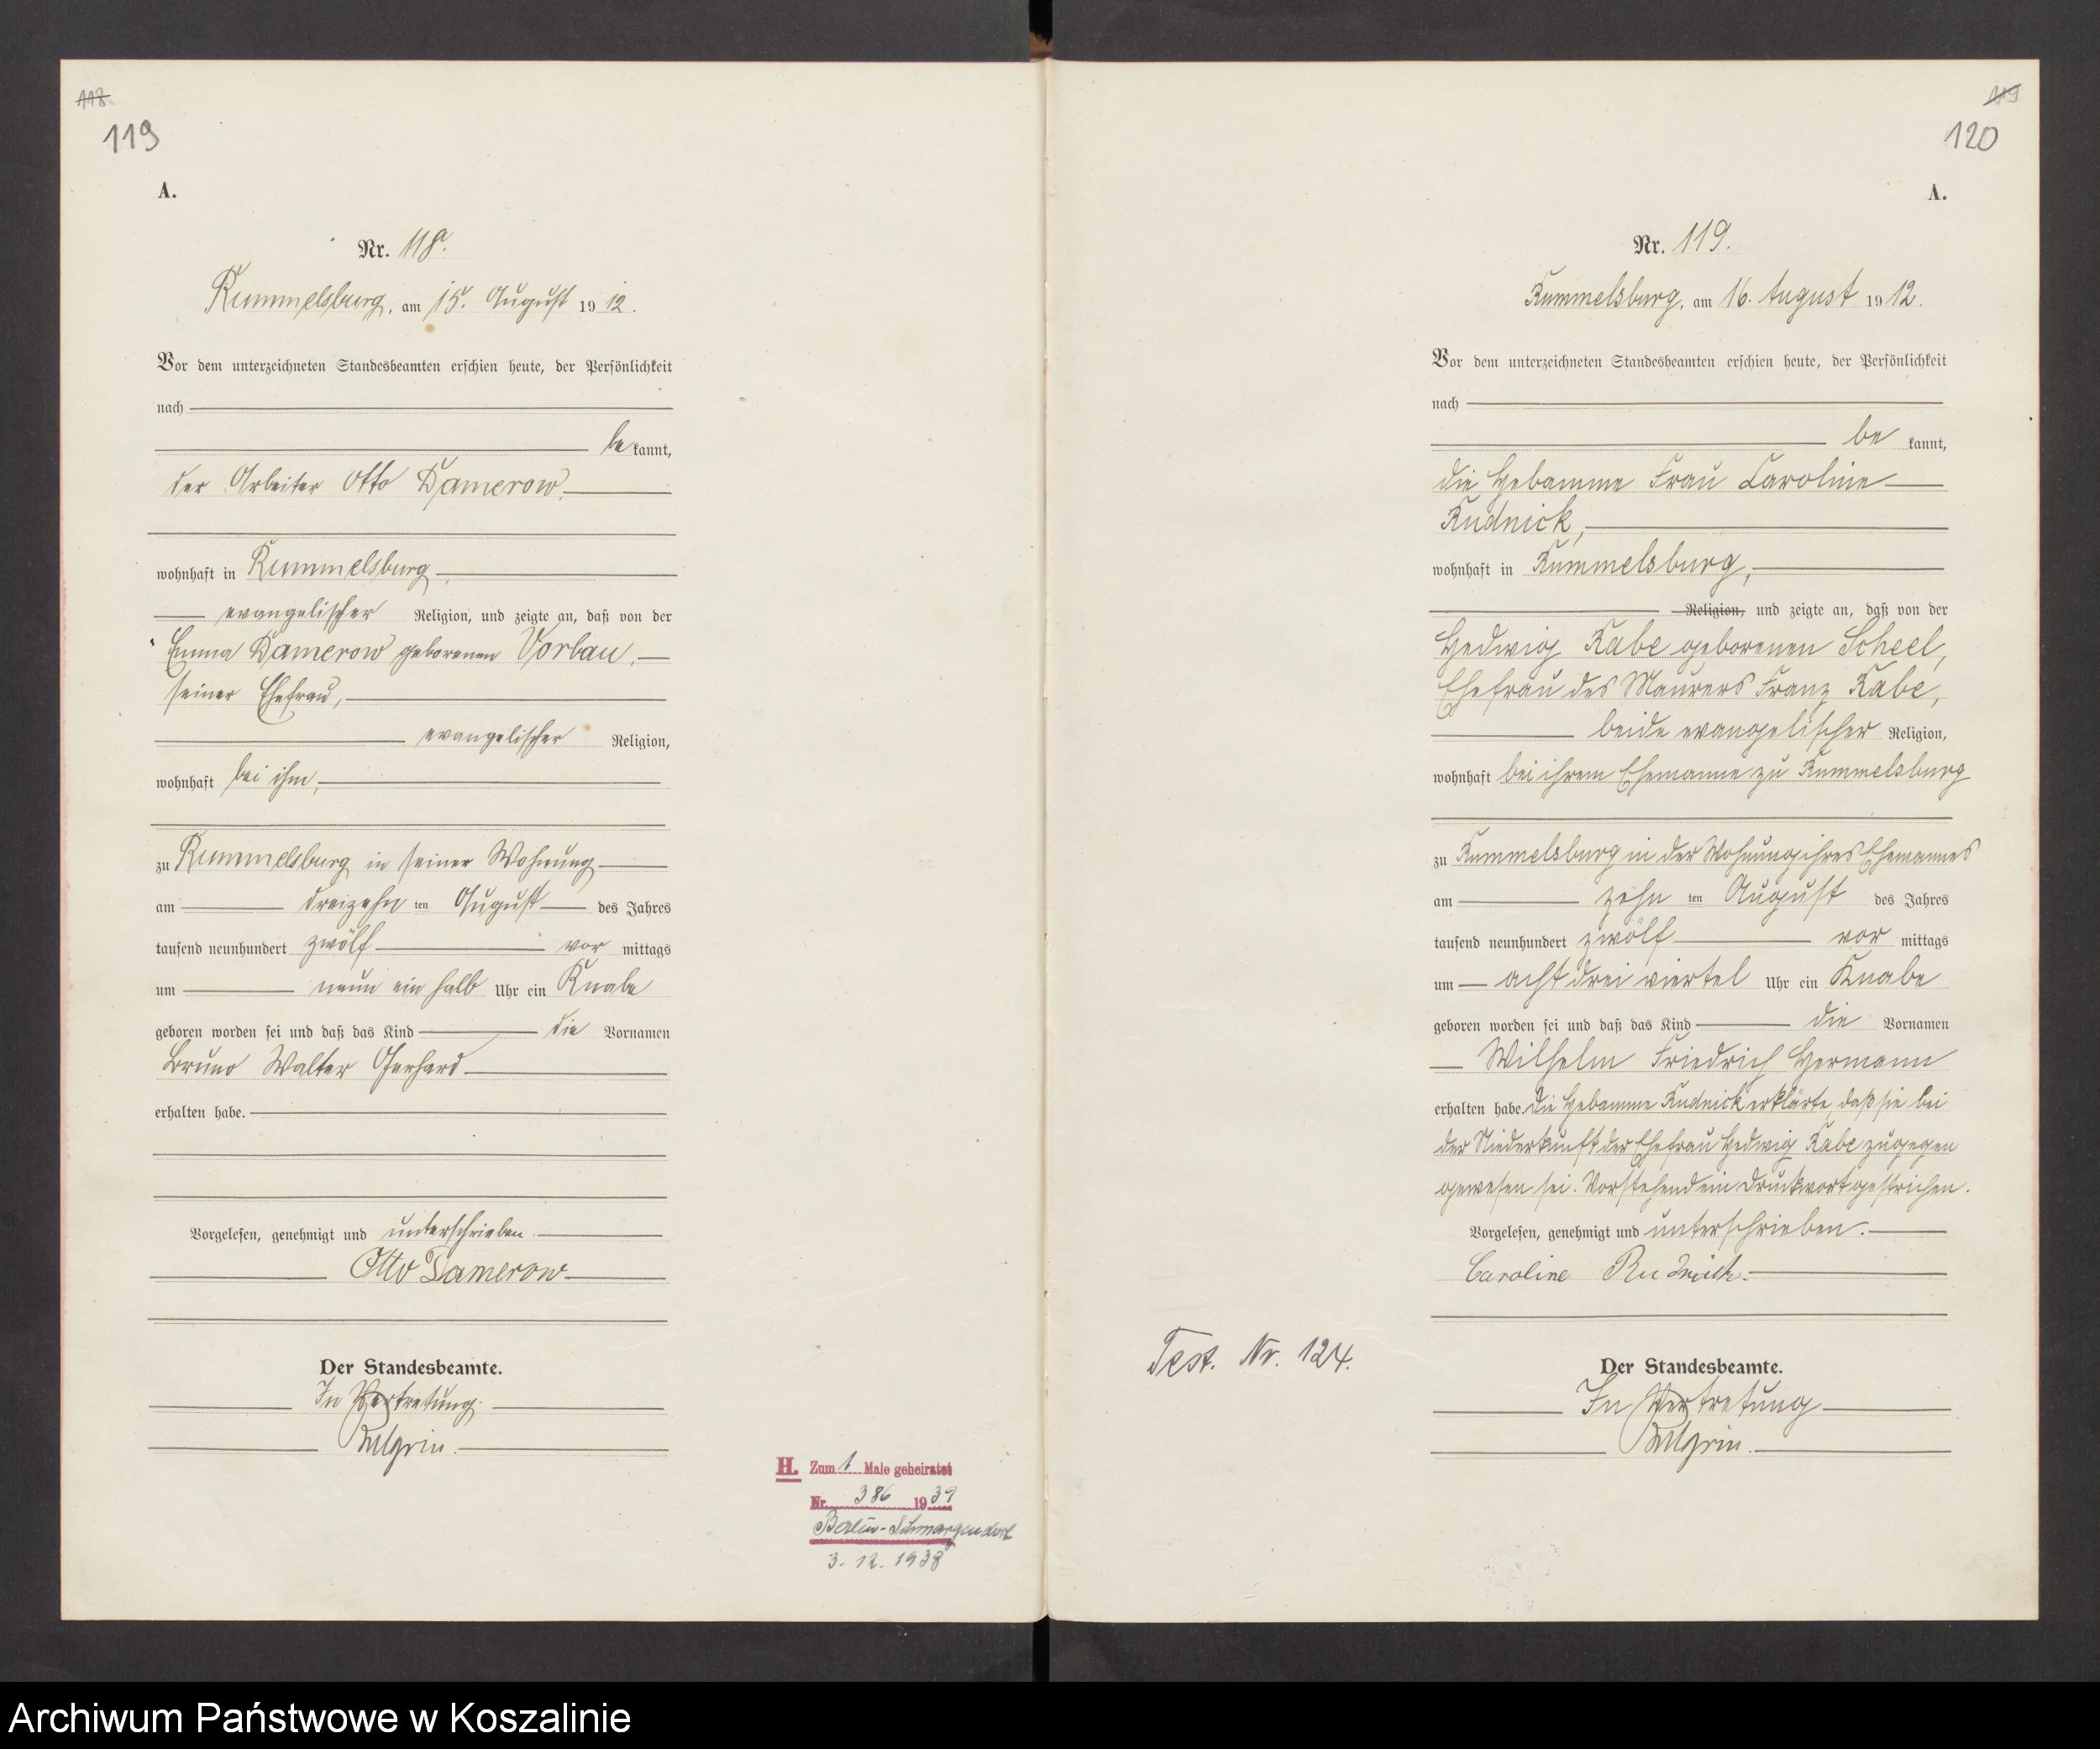 118
119
A.
Nr. 118.
Rummelsburg, am 15. August 1912.
Vor dem unterzeichneten Standesbeamten erschien heute, der Persönlichkeit
nach
be kannt,
der Arbeiter Otto Damerow,
wohnhaft in Rummelsburg,
evangelischer Religion, und zeigte an, daß von der
Emma Damerow geborenen Vorbau,
seiner Ehefrau,
evangelischer Religion,
wohnhaft bei ihm,
zu Rummelsburg in seiner Wohnung
am dreizehn ten August des Jahres
tausend neunhundert zwölf vor mittags
um neun ein halb Uhr ein Knabe
geboren worden sei und daß das Kind die Vornamen
Bruno Walter Gerhard
erhalten habe.
Vorgelesen, genehmigt und unterschrieben.
Otto Damerow
Der Standesbeamte.
In Vertretung.
H. Zum 1 Male geheiratet
Nr. 386 1939
Berlin-Schmargendorf
3. 12. 1938
119
120
A.
Nr. 119.
Rummelsburg, am 16. August 1912.
Vor dem unterzeichneten Standesbeamten erschien heute, der Persönlichkeit
nach
be kannt,
die Hebamme Frau Caroline
Rudnick,
wohnhaft in Rummelsburg,
Religion, und zeigte an, daß von der
Hedwig Rabe geborenen Scheel,
Ehefrau des Maurers Franz Rabe,
beide evangelischer Religion,
wohnhaft bei ihrem Ehemanne zu Rummelsburg
zu Rummelsburg in der Wohnung ihres Ehemannes
am zehn ten August des Jahres
tausend neunhundert zwölf vor mittags
um acht drei viertel Uhr ein Knabe
geboren worden sei und daß das Kind die Vornamen
Wilhelm Friedrich Hermann
erhalten habe. Die Hebamme Rudnick erklärte, daß sie bei
der Niederkunft der Ehefrau Hedwig Rabe zugegen
gewesen sei. Vorstehend ein Druckwort gestrichen.
Vorgelesen, genehmigt und unterschrieben.
Caroline Rudnick.
Test. Nr. 124.
Der Standesbeamte.
In Vertretung
Archiwum Państwowe w Koszalinie